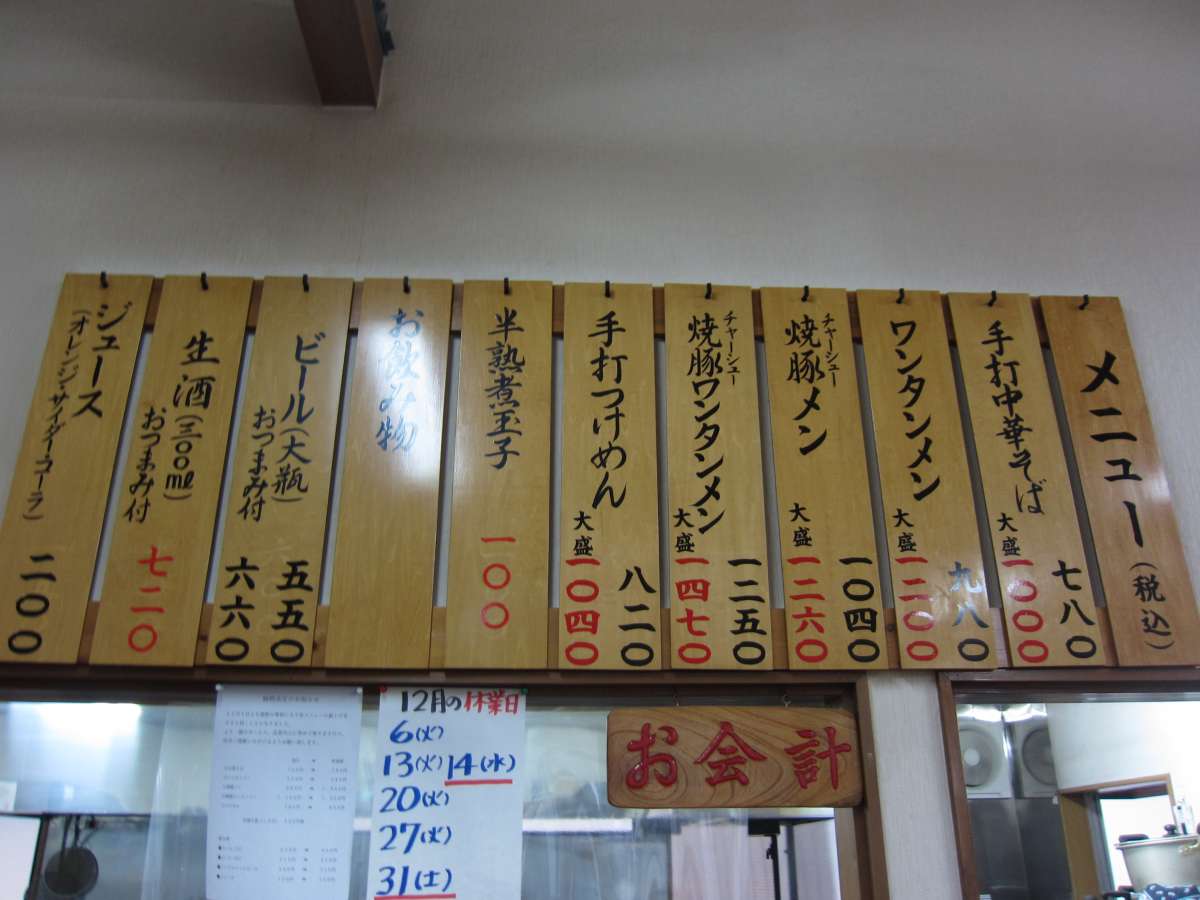 メニュー(税込)
手打中華そば 七八〇
大盛 一〇〇〇
ワンタンメン 九八〇
大盛 一二〇〇
チャーシュー
焼豚メン 一〇四〇
大盛 一二六〇
チャーシュー
焼豚ワンタンメン 一二五〇
大盛 一四七〇
手打つけめん 八二〇
大盛 一〇四〇
半熟煮玉子 一〇〇
お飲み物
ビール(大瓶) 五五〇
おつまみ付 六六〇
生酒(三〇〇㎖)
おつまみ付 七二〇
ジュース
(オレンジ・サイダー・コーラ) 二〇〇
12月の休業日
6(火)
13(火) 14(水)
20(火)
27(火)
31(土)
お会計